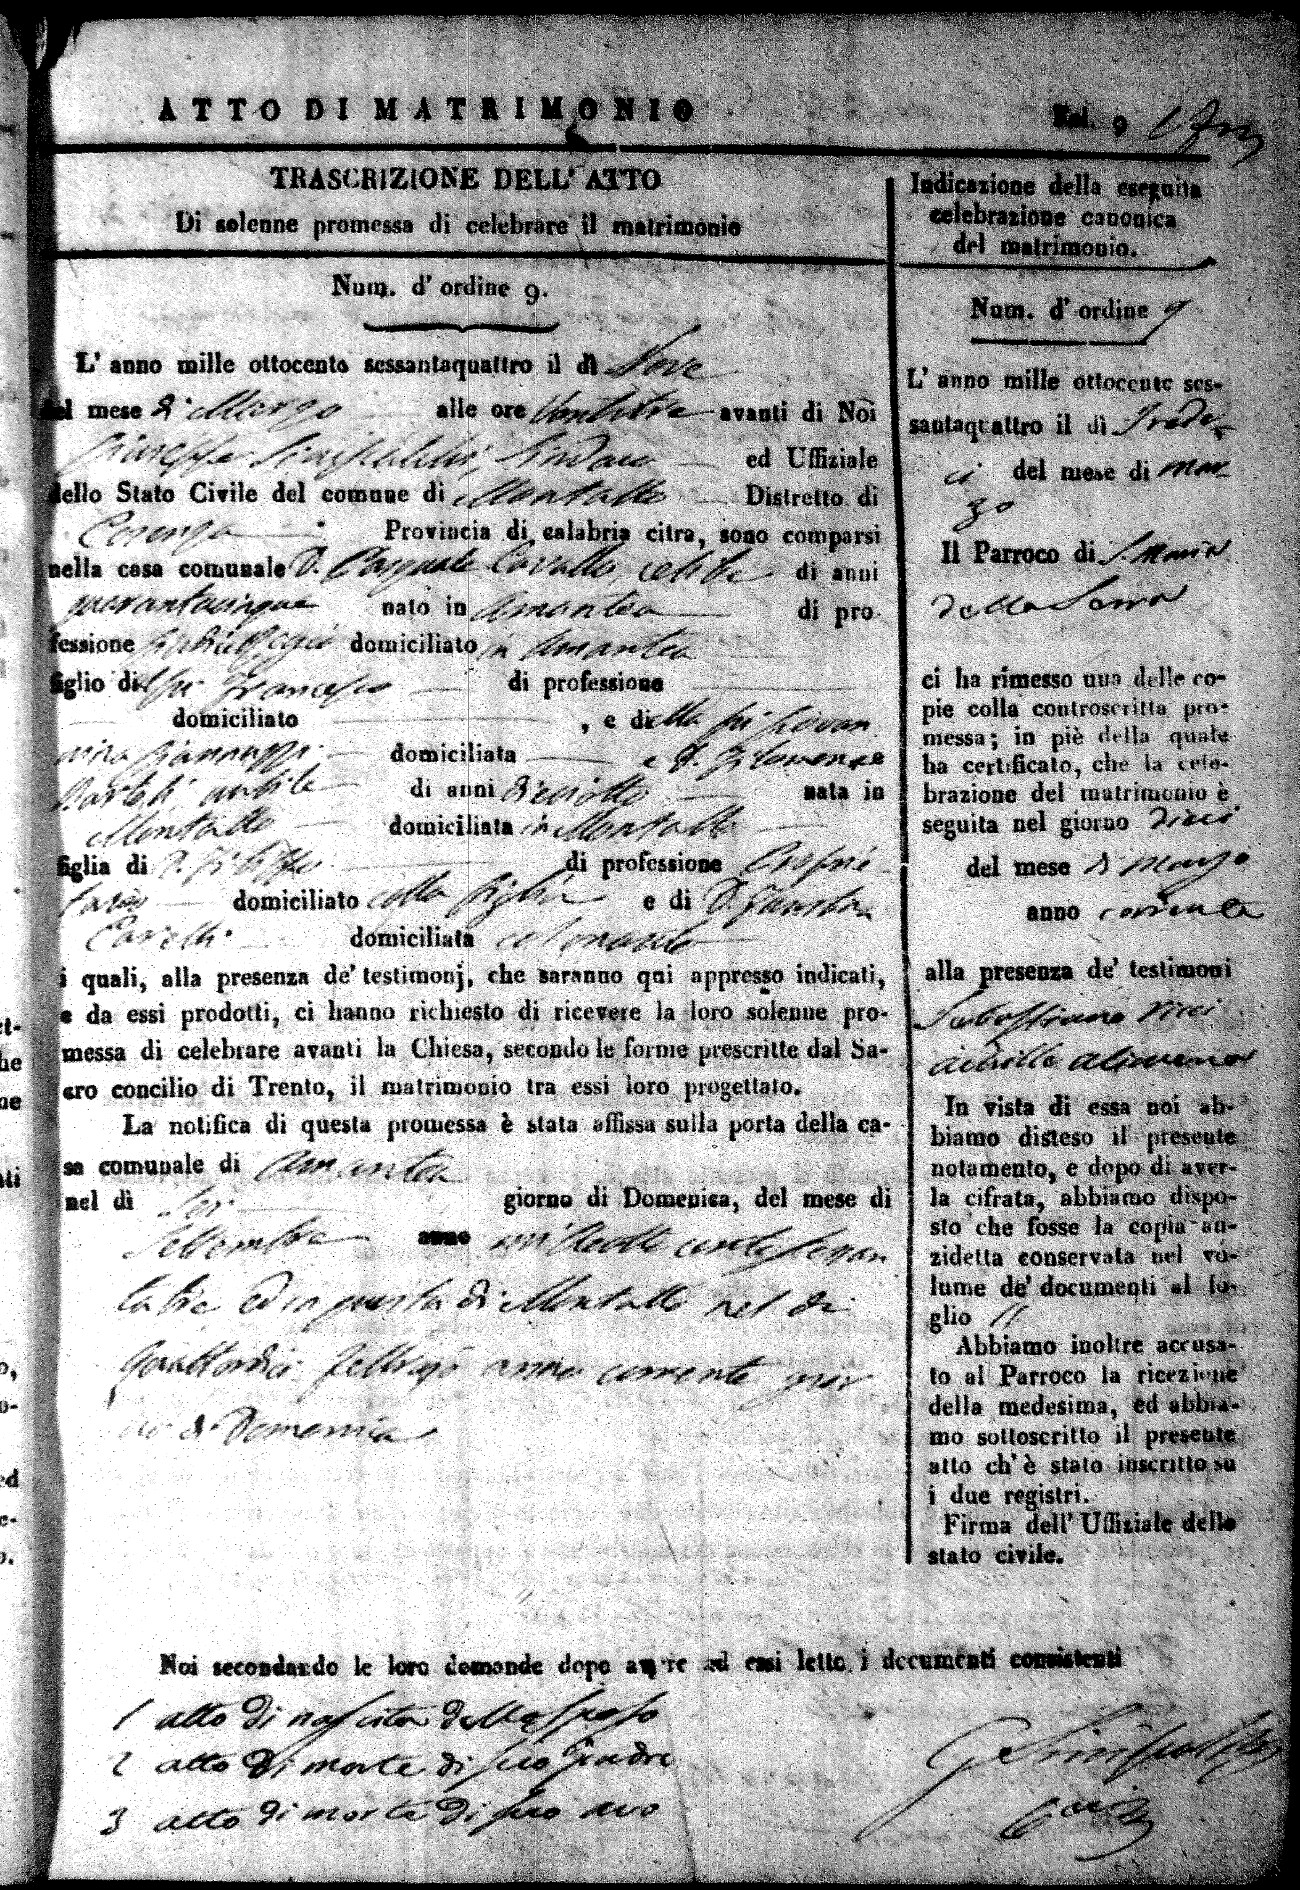 ATTO DI MATRIMONIO
Fol. 9
TRASCRIZIONE DELL' ATTO
Di solenne promessa di celebrare il matrimonio
Num. d' ordine 9.
L' anno mille ottocento sessantaquattro il dì Nove
del mese di Marzo alle ore Ventitre avanti di Noi
Giuseppe Sindaco ed Uffiziale
dello Stato Civile del comune di Montalto Distretto di
Cosenza Provincia di calabria citra, sono comparsi
nella casa comunale D. Pasquale Cavallo, celibe di anni
quarantacinque nato in Amantea di pro-
fessione domiciliato in Amantea
figlio di Francesco di professione
domiciliato , e di
domiciliata e D. Filomena
nubile di anni dieciotto nata in
Montalto domiciliata in Montalto
figlia di D. di professione Proprie
tario domiciliato colla figlia e di D. Fausta
domiciliata col marito
i quali, alla presenza de' testimonj, che saranno qui appresso indicati,
e da essi prodotti, ci hanno richiesto di ricevere la loro solenne pro-
messa di celebrare avanti la Chiesa, secondo le forme prescritte dal Sa-
cro concilio di Trento, il matrimonio tra essi loro progettato.
La notifica di questa promessa è stata affissa sulla porta della ca-
sa comunale di Amantea
nel dì Sei giorno di Domenica, del mese di
Settembre anno mille otto cento sessan
tatre ed in questa di Montalto nel dì
quattordici Febbrajo anno corrente gior
no di Domenica
Noi secondando le loro domande dopo avere ad essi letto i documenti consistenti
1 atto di nascita dello sposo
2 atto di morte di suo padre
3 atto di morte di suo avo
Indicazione della eseguita
celebrazione canonica
del matrimonio.
Num. d' ordine 9
L' anno mille ottocento ses-
santaquattro il dì Tredi-
ci del mese di mar-
zo
Il Parroco di S. Maria
della Serra
ci ha rimesso una delle co-
pie colla controscritta pro-
messa; in piè della quale
ha certificato, che la cele-
brazione del matrimonio è
seguita nel giorno dieci
del mese di marzo
anno corrente
alla presenza de' testimoni
Sebastiano Vinci
Achille Alimena
In vista di essa noi ab-
biamo disteso il presente
notamento, e dopo di aver-
la cifrata, abbiamo dispo-
sto che fosse la copia an-
zidetta conservata nel vo-
lume de' documenti al fo-
glio 11
Abbiamo inoltre accusa-
to al Parroco la ricezione
della medesima, ed abbia-
mo sottoscritto il presente
atto ch' è stato inscritto su
i due registri.
Firma dell' Uffiziale dello
stato civile.